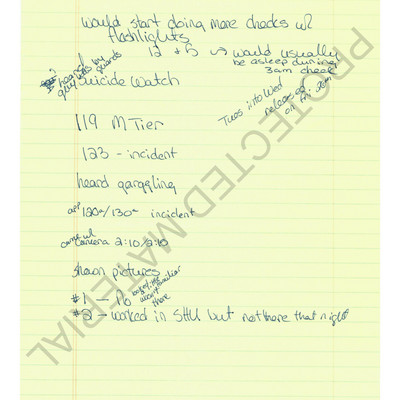 would start doing more checks w/
flashlights
12 + 5 → would usually
be asleep during
3am check
heard
by guards
suicide watch
Tues into Wed
release
on Fri
119 M Tier
123 - incident
heard garggling
app 1200/130a incident
came w/
camera 2:10-2:15
shown pictures
#1 - No
there
#2 - worked in SHU but not there that night
PROTECTED MATERIAL